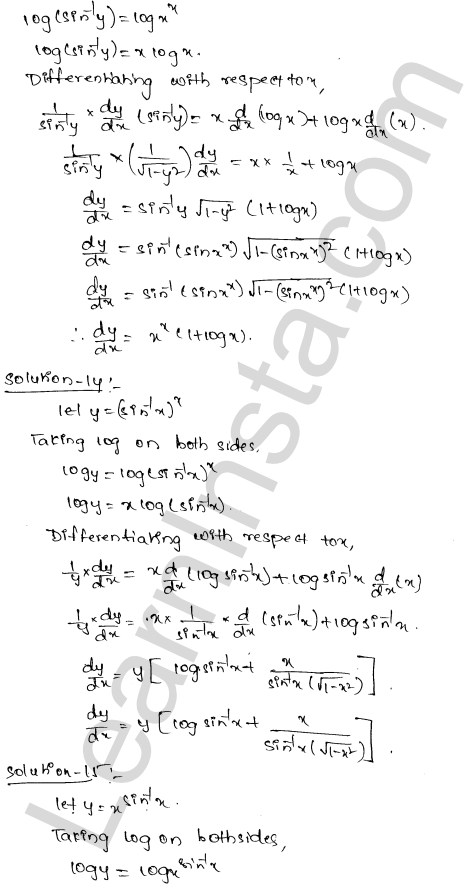 log(sin⁻¹y) = log xˣ
log(sin⁻¹y) = x log x.
Differentiating with respect to x,
1/sin⁻¹y × dy/dx (sin⁻¹y) = x d/dx (log x) + log x d/dx (x).
1/sin⁻¹y × (1/√1-y²) dy/dx = x × 1/x + log x
dy/dx = sin⁻¹y √1-y² (1+log x)
dy/dx = sin⁻¹(sin xˣ) √1-(sin xˣ)² (1+log x)
dy/dx = sin⁻¹(sin xˣ) √1-(sin xˣ)² (1+log x)
∴ dy/dx = xˣ (1+log x).
Solution-14:-
let y = (sin⁻¹x)ˣ
Taking log on both sides,
log y = log(sin⁻¹x)ˣ
log y = x log(sin⁻¹x).
Differentiating with respect to x,
1/y × dy/dx = x d/dx (log sin⁻¹x) + log sin⁻¹x d/dx (x)
1/y × dy/dx = x × 1/sin⁻¹x × d/dx (sin⁻¹x) + log sin⁻¹x.
dy/dx = y [ log sin⁻¹x + x/sin⁻¹x(√1-x²) ].
dy/dx = y [ log sin⁻¹x + x/sin⁻¹x(√1-x²) ].
Solution-15:-
let y = x^sin⁻¹x.
Taking log on both sides,
log y = log x^sin⁻¹x
LearnInsta.com